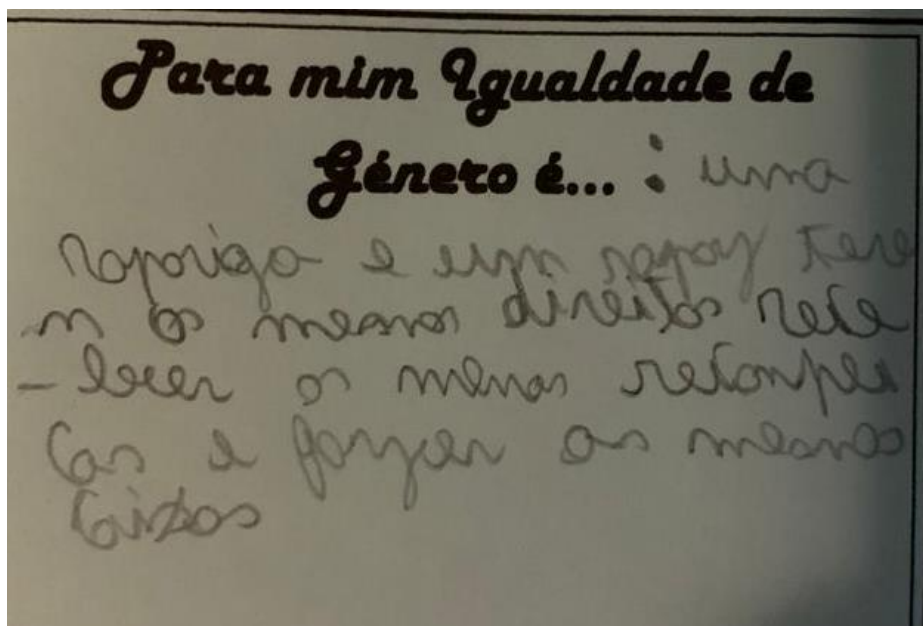 Para mim Igualdade de
Género é... : uma
rapariga e um rapaz tere
m os mesmos direitos rece
- beer os mesmos reconpen
ças e fazer as mesmas
coisas